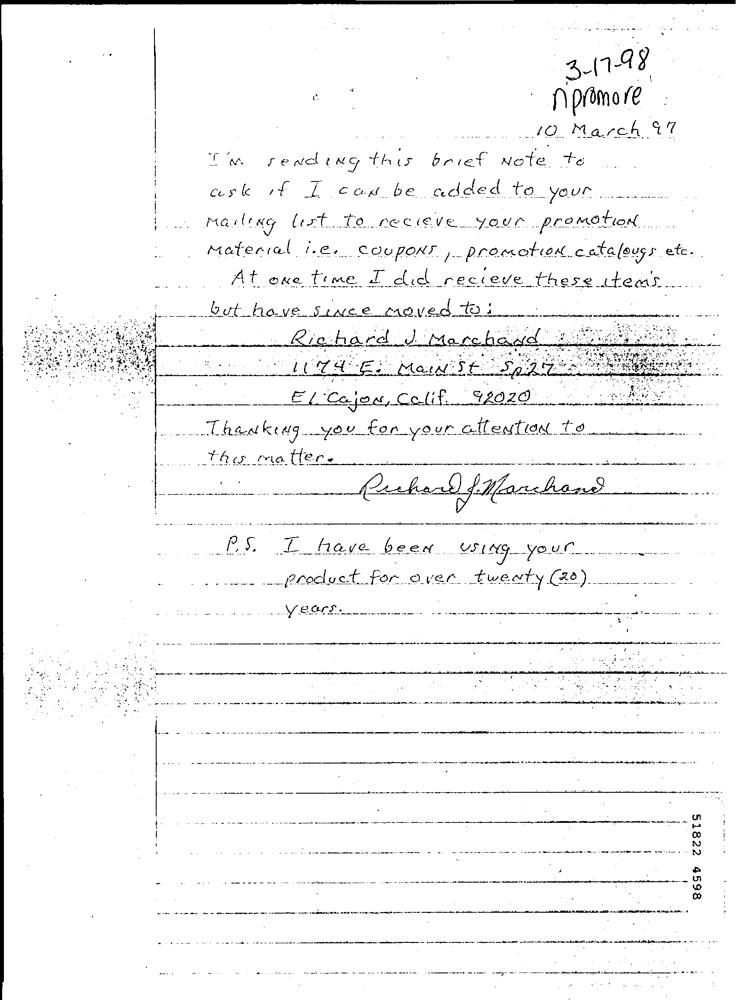 3-17-98
npromore
10 March 97
I'm sending this brief note to
ask if I can be added to your
mailing list to recieve your promotion
material i.e. coupons, promotion catalougs etc.
At one time I did recieve these item's
but have since moved to:
Richard J Marchand
1174 E. Main St Sp27
El Cajon, Calif. 92020
Thanking you for your attention to
this matter.
Richard J. Marchand
P.S. I have been using your
product for over twenty (20)
years.
51822 4598